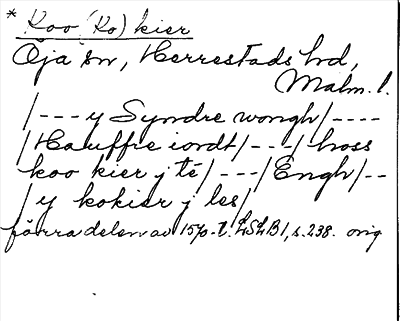 * Koo (Ko) kier
Öja sn, Herrestads hd,
Malm. l.
/---y Syndre wongh/----
/Hauffre iordt/---/hoss
koo kier j te/---/Engh/--
/y kokier j les/
förra delen av 1570-t. LSLB1, s. 238. orig